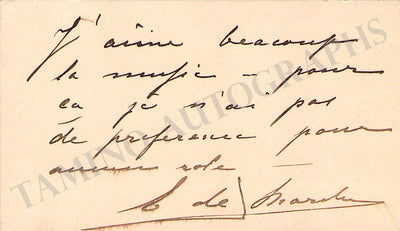 J'aime beaucoup
la music - pour
ca je n'ai pas
de preference pour
aucun role -
E de Marchi
TAMINO AUTOGRAPHS